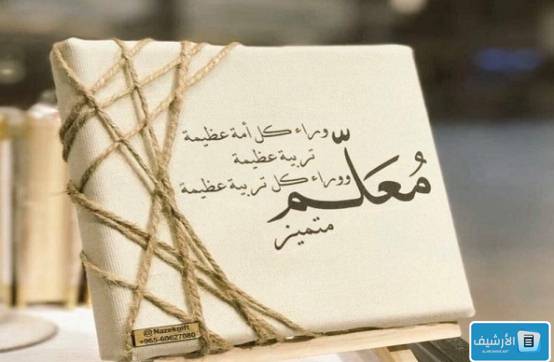 وراء كل أمة عظيمة
تربية عظيمة
ووراء كل تربية عظيمة
مُعَلّم
متميز
@Nazekgift
+965-60627080
الأرشيف